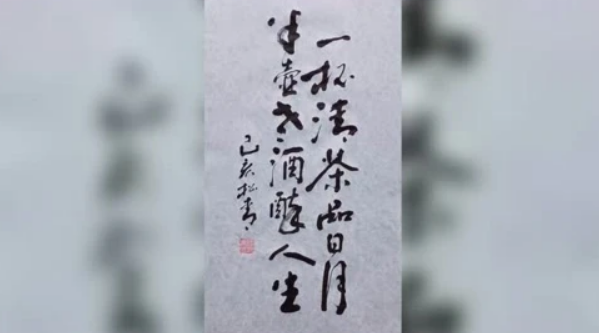 一杯清茶品日月
半壶老酒醉人生
己亥松青